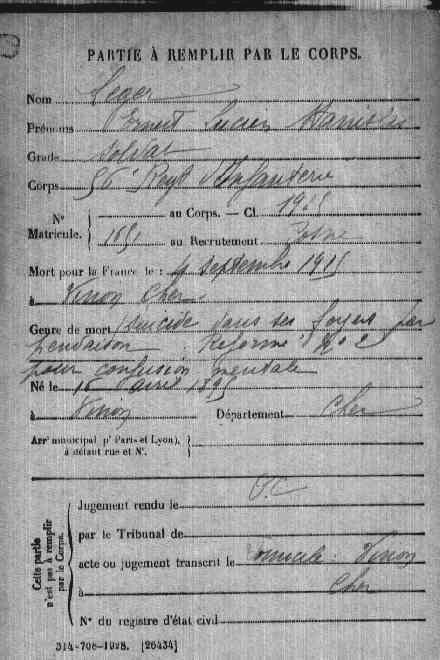 PARTIE À REMPLIR PAR LE CORPS.
Nom Leger
Prénoms Ernest Lucien Stanislas
Grade Soldat
Corps 56e Regt d'Infanterie
N° Matricule. { au Corps. — Cl. 1915
au Recrutement Cosne
Mort pour la France le : 4 septembre 1915
à Vinon Cher
Genre de mort Suicide dans ses foyers par
pendaison Réformé N° 2
pour confusion mentale
Né le avril 1895
à Vinon Département Cher
Arrt municipal (pr Paris et Lyon), }
à défaut rue et N°.
Cette partie n'est pas à remplir par le Corps.
Jugement rendu le
par le Tribunal de
acte ou jugement transcrit le Domicile : Vinon
à Cher
N° du registre d'état civil
314-708-1928. [26434]